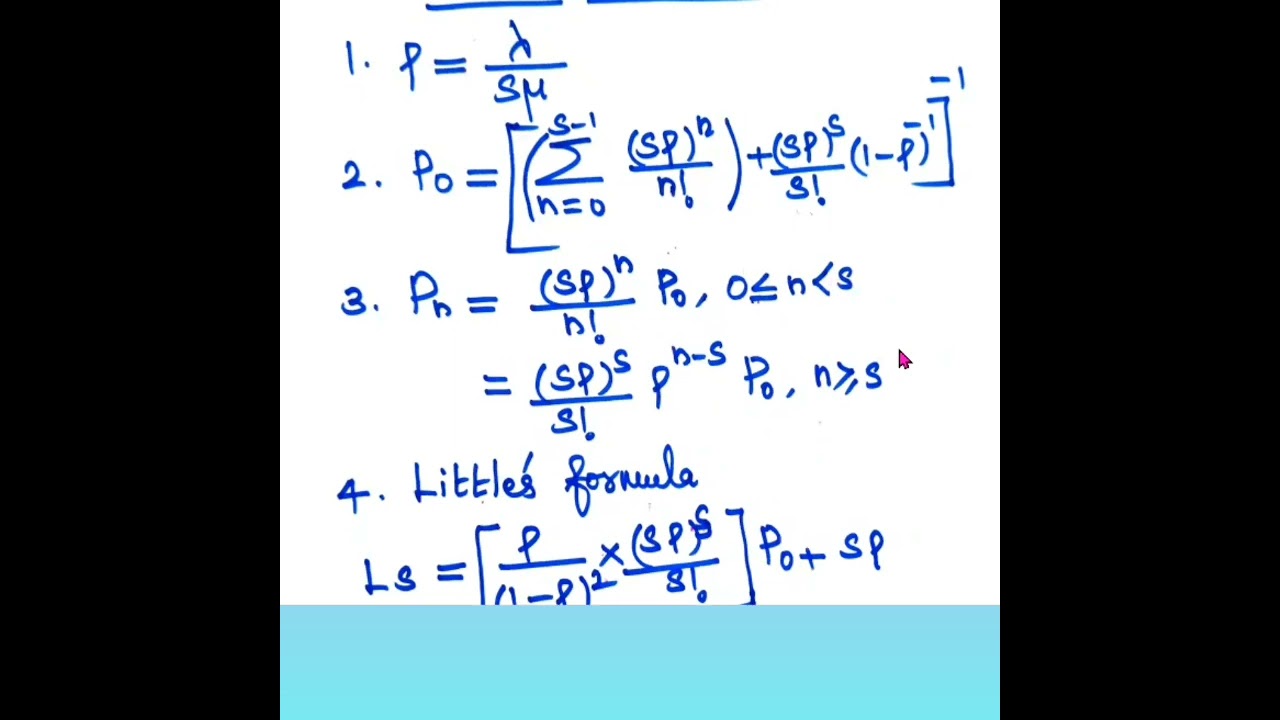 1. ρ = λ/Sμ
2. P₀ = [(∑ₙ₌₀^(S-1) (Sρ)ⁿ/n!) + (Sρ)^S/S! (1-ρ)⁻¹]⁻¹
3. Pₙ = (Sρ)ⁿ/n! P₀, 0 ≤ n < S
= (Sρ)^S/S! ρ^(n-S) P₀, n ≥ S
4. Little's formula
Ls = [ρ/(1-ρ)² × (Sρ)^S/S!] P₀ + Sρ